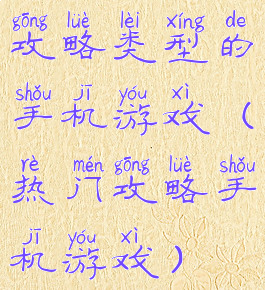 gōng lüè lèi xíng de
攻略类型的
shǒu jī yóu xì
手机游戏（
rè mén gōng lüè shǒu
热门攻略手
jī yóu xì
机游戏）